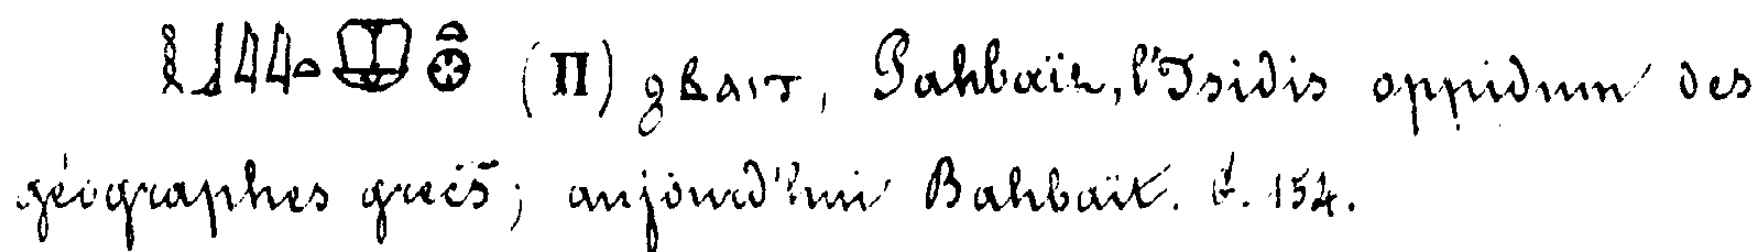 𓎛𓃀𓇋𓇋𓏏𓎱𓏏𓊖 (Π) ϩⲃⲁⲓⲧ, Pahbaït, l'Isidis oppidum des
géographes grecs; aujourd'hui Bahbaït. 154.